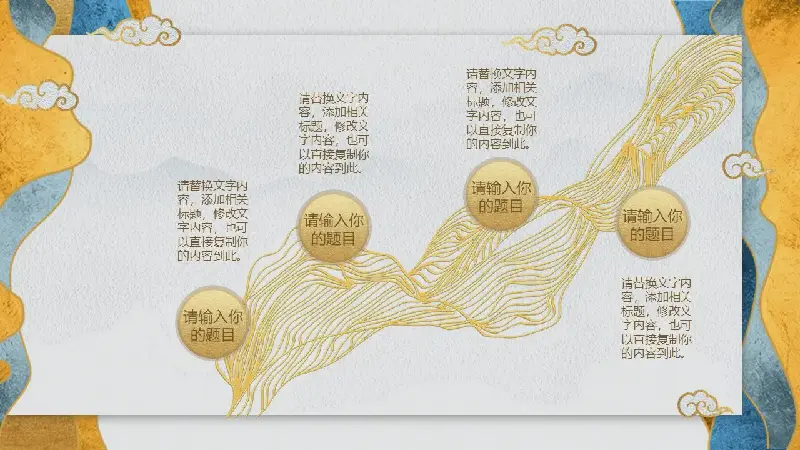 请替换文字内
容，添加相关
标题，修改文
字内容，也可
以直接复制你
的内容到此。
请输入你
的题目
请替换文字内
容，添加相关
标题，修改文
字内容，也可
以直接复制你
的内容到此。
请输入你
的题目
请替换文字内
容，添加相关
标题，修改文
字内容，也可
以直接复制你
的内容到此。
请输入你
的题目
请输入你
的题目
请替换文字内
容，添加相关
标题，修改文
字内容，也可
以直接复制你
的内容到此。